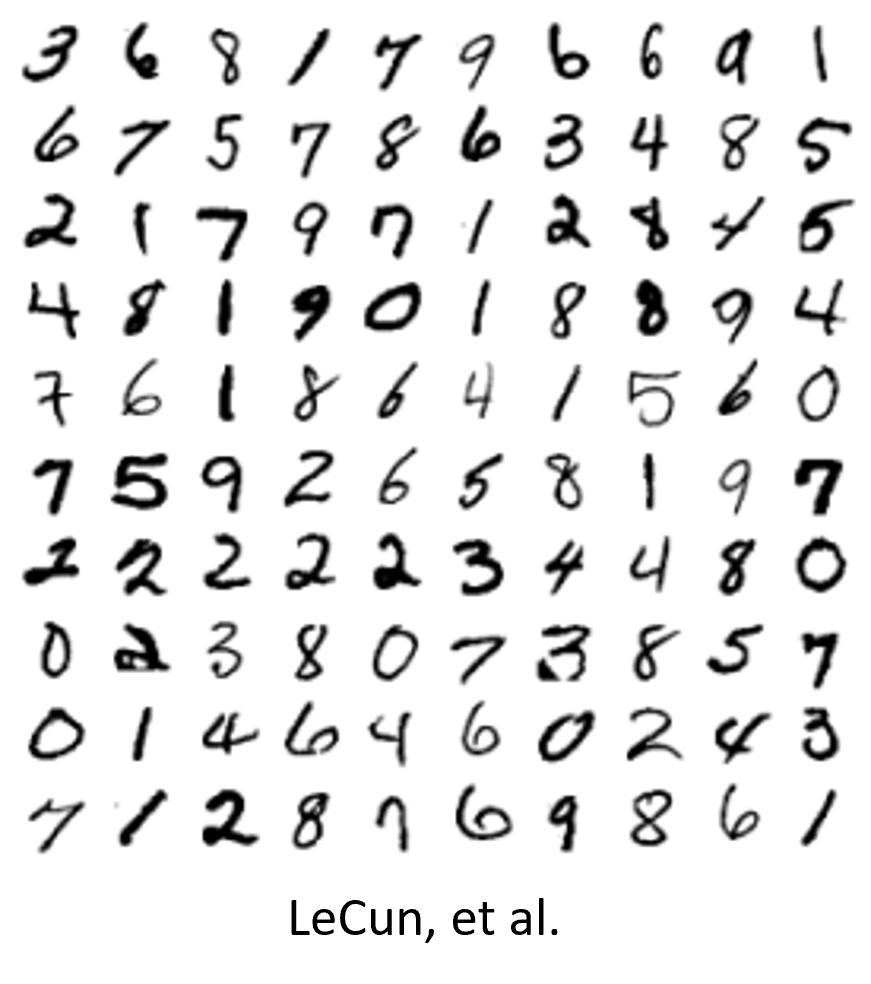 3 6 8 1 7 9 6 6 9 1
6 7 5 7 8 6 3 4 8 5
2 1 7 9 7 1 2 8 4 5
4 8 1 9 0 1 8 8 9 4
7 6 1 8 6 4 1 5 6 0
7 5 9 2 6 5 8 1 9 7
2 2 2 2 2 3 4 4 8 0
0 2 3 8 0 7 3 8 5 7
0 1 4 6 4 6 0 2 4 3
7 1 2 8 7 6 9 8 6 1
LeCun, et al.